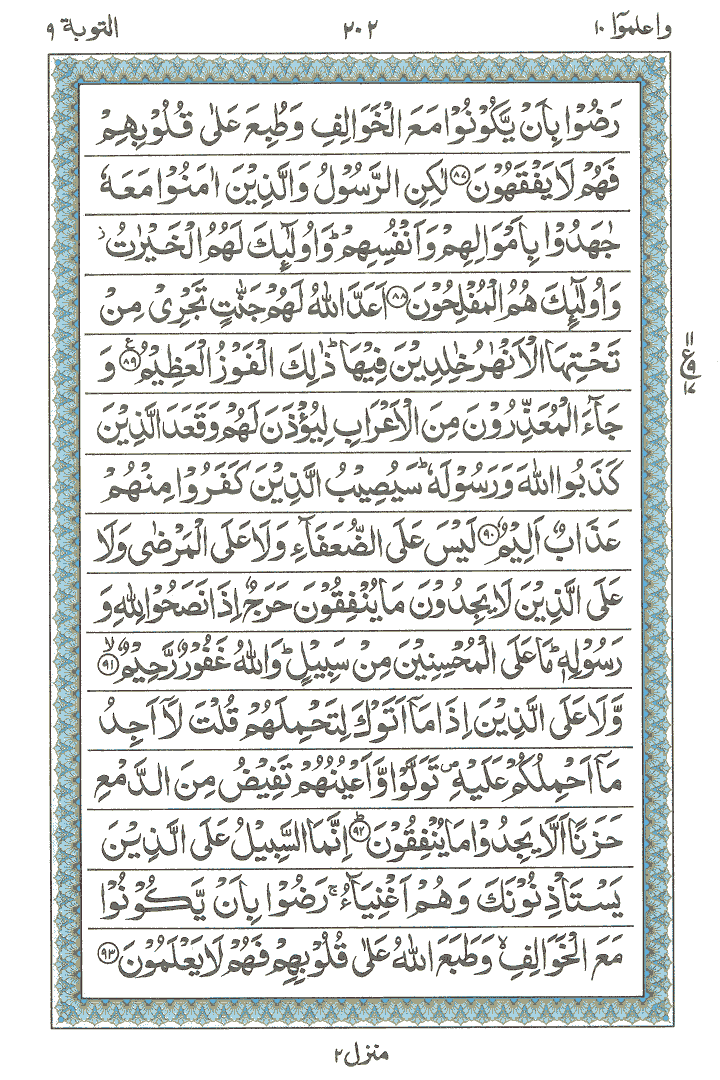 واعلموۤا ١٠ ٢٠٢ التوبة ٩
رَضُوْا بِاَنْ يَّكُوْنُوْا مَعَ الْخَوَالِفِ وَطُبِعَ عَلٰى قُلُوْبِهِمْ
فَهُمْ لَا يَفْقَهُوْنَ ۝٨٧ لٰكِنِ الرَّسُوْلُ وَالَّذِيْنَ اٰمَنُوْا مَعَهٗ
جٰهَدُوْا بِاَمْوَالِهِمْ وَاَنْفُسِهِمْ ؕ وَاُولٰٓئِكَ لَهُمُ الْخَيْرٰتُ ؗ
وَاُولٰٓئِكَ هُمُ الْمُفْلِحُوْنَ ۝٨٨ اَعَدَّ اللّٰهُ لَهُمْ جَنّٰتٍ تَجْرِيْ مِنْ
تَحْتِهَا الْاَنْهٰرُ خٰلِدِيْنَ فِيْهَا ؕ ذٰلِكَ الْفَوْزُ الْعَظِيْمُ ۝٨٩ ع وَ
١١ ع ٩ ١٧
جَآءَ الْمُعَذِّرُوْنَ مِنَ الْاَعْرَابِ لِيُؤْذَنَ لَهُمْ وَقَعَدَ الَّذِيْنَ
كَذَبُوا اللّٰهَ وَرَسُوْلَهٗ ؕ سَيُصِيْبُ الَّذِيْنَ كَفَرُوْا مِنْهُمْ
عَذَابٌ اَلِيْمٌ ۝٩٠ لَيْسَ عَلَى الضُّعَفَآءِ وَلَا عَلَى الْمَرْضٰى وَلَا
عَلَى الَّذِيْنَ لَا يَجِدُوْنَ مَا يُنْفِقُوْنَ حَرَجٌ اِذَا نَصَحُوْا لِلّٰهِ وَ
رَسُوْلِهٖ ؕ مَا عَلَى الْمُحْسِنِيْنَ مِنْ سَبِيْلٍ ؕ وَاللّٰهُ غَفُوْرٌ رَّحِيْمٌ ۝٩١ ۙ
وَّلَا عَلَى الَّذِيْنَ اِذَا مَاۤ اَتَوْكَ لِتَحْمِلَهُمْ قُلْتَ لَاۤ اَجِدُ
مَاۤ اَحْمِلُكُمْ عَلَيْهِ ۪ تَوَلَّوْا وَّاَعْيُنُهُمْ تَفِيْضُ مِنَ الدَّمْعِ
حَزَنًا اَلَّا يَجِدُوْا مَا يُنْفِقُوْنَ ۝٩٢ ؕ اِنَّمَا السَّبِيْلُ عَلَى الَّذِيْنَ
يَسْتَاْذِنُوْنَكَ وَهُمْ اَغْنِيَآءُ ۚ رَضُوْا بِاَنْ يَّكُوْنُوْا
مَعَ الْخَوَالِفِ ۙ وَطَبَعَ اللّٰهُ عَلٰى قُلُوْبِهِمْ فَهُمْ لَا يَعْلَمُوْنَ ۝٩٣
منزل ٢